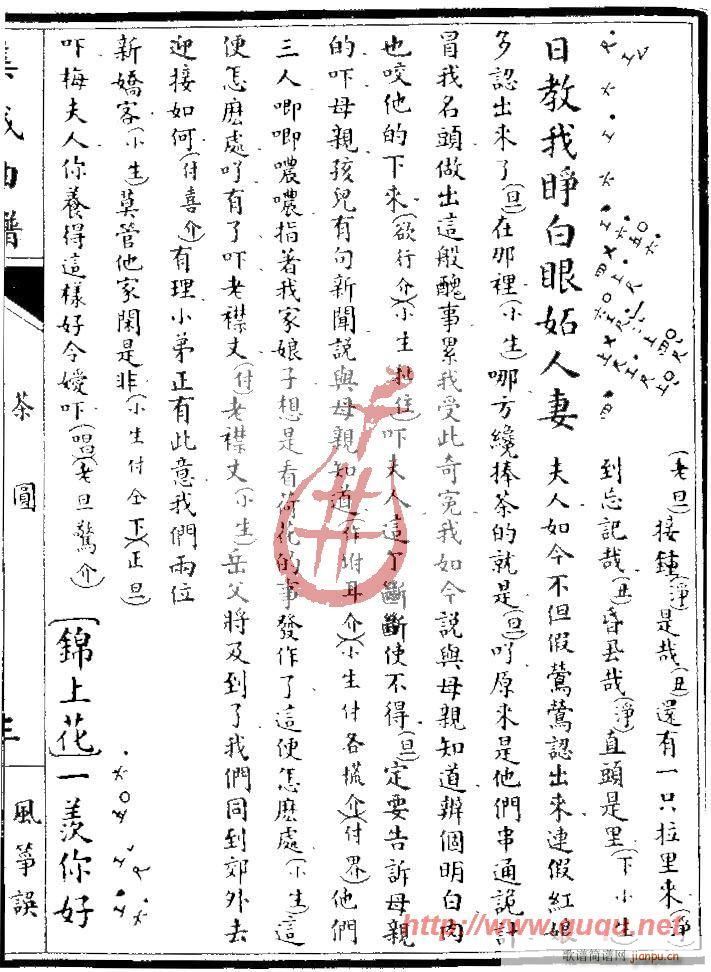 (老旦)接鍾(淨)是哉(丑)還有一只拉里來(淨)
到忘記哉(丑)昏哉(淨)直頭是里(下小生)
日教我睜白眼妬人妻 夫人如今不但假鶯鶯認出來連假紅娘
多認出來了(旦)在那裡(小生)哪方纔捧茶的就是(旦)吖原來是他們串通詭計
冒我名頭做出這般醜事累我受此奇冤我如今說與母親知道辨個明白肉
也咬他的下來(欲行介)(小生扯住)吓夫人這個斷斷使不得(旦)一定要告訴母親
的吓母親孩兒有句新聞說與母親知道(作附耳介)(小生付各慌介)(付界)他們
三人唧唧噥噥指著我家娘子想是看荷花的事發作了這便怎麽處(小生)這
便怎麽處吖有了吓老襟丈(付)老襟丈(小生)岳父將及到了我們同到郊外去
迎接如何(付喜介)有理小弟正有此意我們兩位
新嬌客(小生)莫管他家閑是非(小生付仝下)(正旦)
吓梅夫人你養得這樣好令嬡吓(唱)(老旦驚介)[錦上花]一羨你好
集成曲譜
茶圓
風箏誤
http://www.ququ.net
歌谱简谱网
jianpu.cn